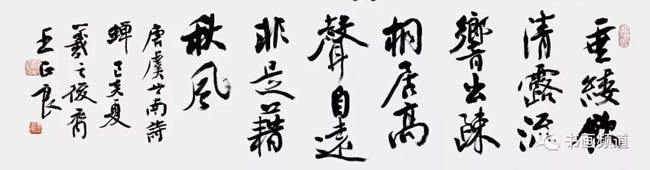 垂緌飲
清露流
響出疎
桐居高
聲自遠
非是藉
秋風
唐虞世南詩
蟬己亥夏
羲之後裔
王正良
书画频道